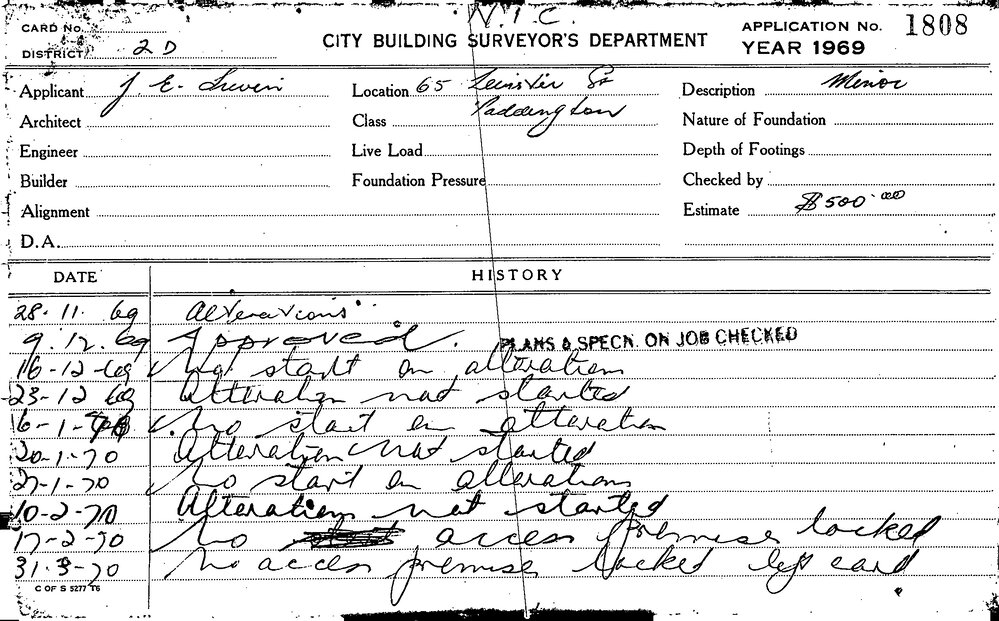 N.I.C.
CARD No.
DISTRICT 2 D
CITY BUILDING SURVEYOR'S DEPARTMENT
APPLICATION No. 1808
YEAR 1969
Applicant J E.
Location 65 Leinster St
Paddington
Description Minor
Architect
Class
Nature of Foundation
Engineer
Live Load
Depth of Footings
Builder
Foundation Pressure
Checked by
Alignment
Estimate $500.00
D.A.
DATE HISTORY
28. 11. 69 Alterations
9. 12. 69 Approved. PLANS & SPECN. ON JOB CHECKED
16-12-69 No start on alterations
23-12 69 Alteration not started
6-1-70 No start on alteration
20-1-70 Alteration not started
27-1-70 No start on alterations
10-2-70 Alterations not started
17-2-70 No access premises locked
31-3-70 No access premises locked left card
C OF S 5277 T6